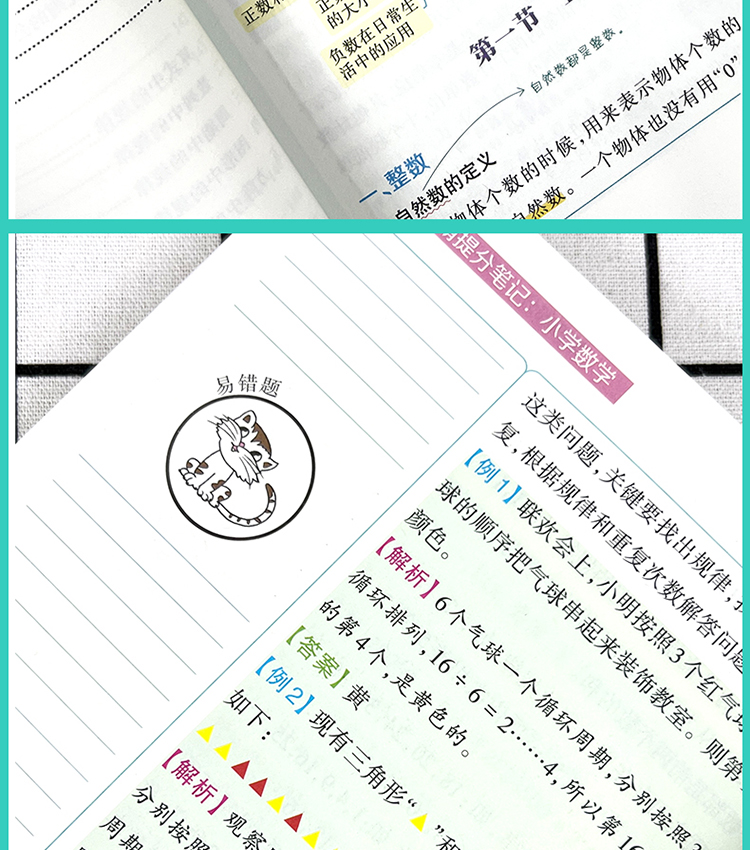 的大小
负数在日常生
活中的应用
第一节
自然数都是整数。
一、整数
自然数的定义
物体个数的时候，用来表示物体个数的
自然数。一个物体也没有用“0”
提分笔记：小学数学
易错题
这类问题，关键要找出规律，
复，根据规律和重复次数解答问题
【例1】联欢会上，小明按照3个红气球
球的顺序把气球串起来装饰教室。则第
颜色。
【解析】6个气球一个循环周期，分别按照
循环排列，16÷6=2……4，所以第16
的第4个，是黄色的。
【答案】黄
【例2】现有三角形“▲”和
如下：
▲▲▲▲▲▲▲
【解析】观察
分别按照
周期